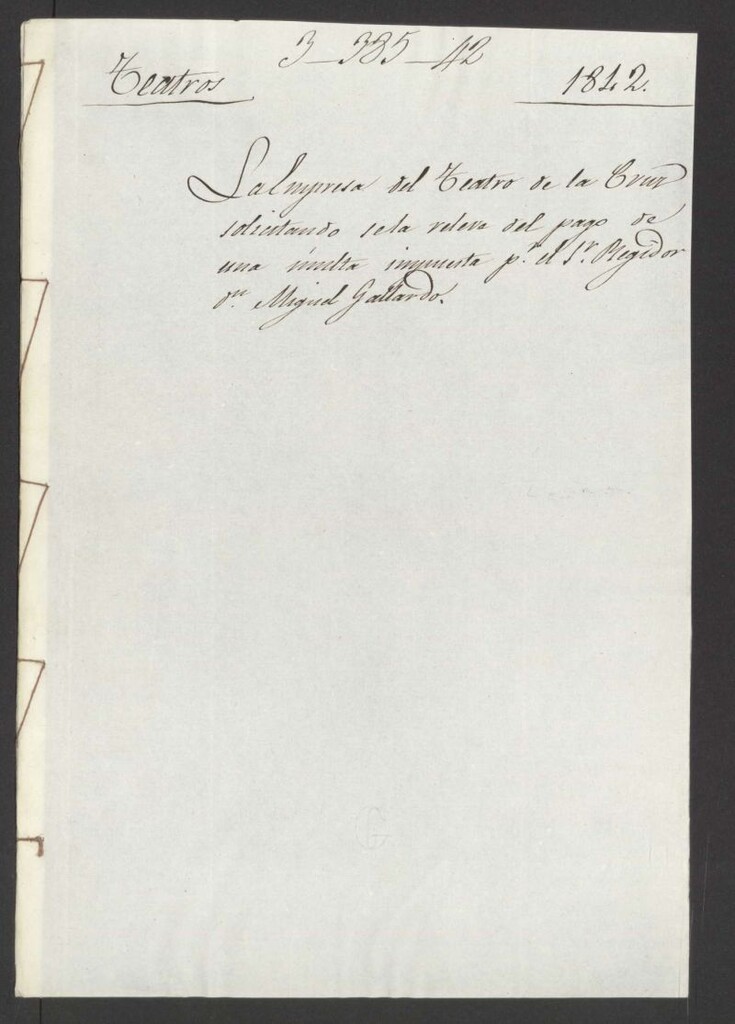 3-385-42
Teatros 1842.
La Empresa del Teatro de la Cruz
solicitando se la releve del pago de
una multa impuesta p.r el S.r Regidor
D.n Miguel Gallardo.
G